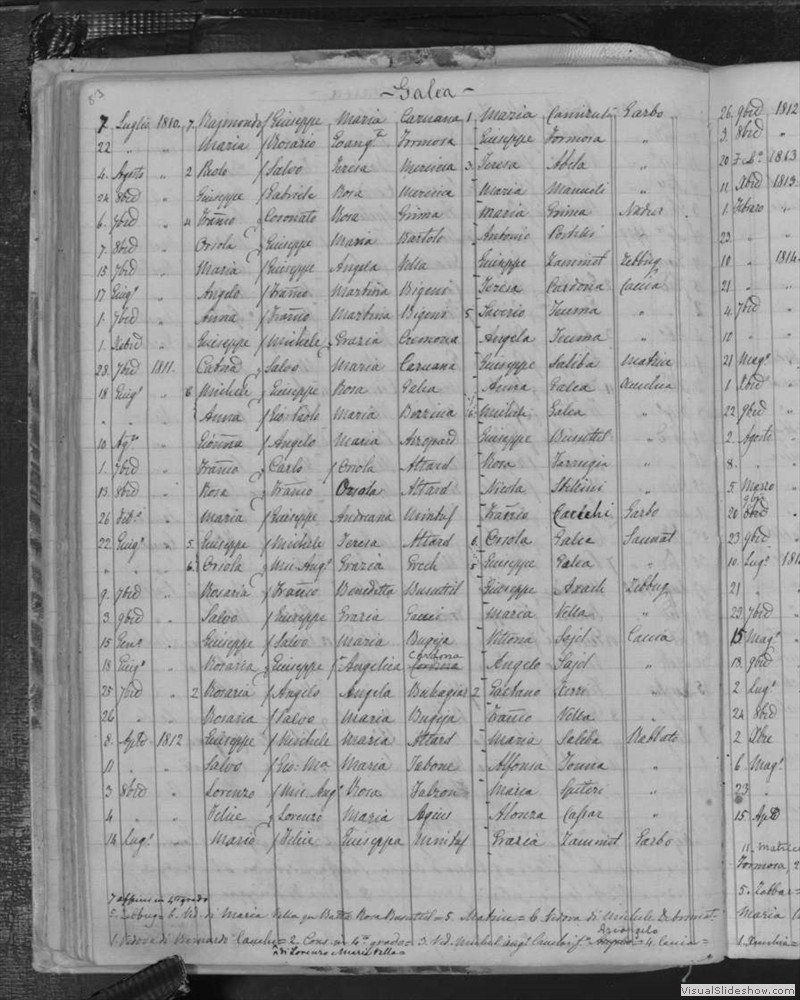 83
~ Galea ~
7 Luglio 1810. 7. Raimondo f Giuseppe Maria Caruana 1 Maria Camiruti Garbo
22 " " Maria f Rosario Evang.ta Formosa Giuseppe Formosa "
4. Agosto " 2 Paolo f Salvo Teresa Mercieca 3. Teresa Abela "
24 8bre " Giuseppe f Gabriele Rosa Mercieca Maria Manueli "
6. 7bre " 4 Franco Coronato Rosa Grima Maria Grima Nadur
7. 8bre " Orsola Giuseppe Maria Bartolo Antonio "
15 7bre " Maria f Giuseppe Angela Vella Giuseppe Zammit Zebbug
17 Giug.o " Angelo f Franco Martina Bigeni Teresa Cardona Caccia
1. 7bre " Anna f Franco Martina Bigeni 5. Saverio Teuma "
1. Xbre " Giuseppe f Michele Grazia Cremona Angela Teuma "
28. 7bre 1811. Catna Salvo Maria Caruana Giuseppe Saliba Matrice
18 Giug.o " 6. Michele f Giuseppe Rosa Galea Anna Galea Xeuchia
" " Anna f Gio Paolo Maria 6. Michele Galea "
10 Ag.to " Gionna f Angelo Maria Axopard Giuseppe Busuttil "
1. 7bre " Franco Carlo f Orsola Attard Rosa Farrugia "
13. 8bre " Rosa Franco Orsola Attard Nicola Stellini "
26 Feb.o " Maria f Giuseppe Andreana Mintuf Franco Cauchi Garbo
22 Giug.o " 5. Giuseppe f Michele Teresa Attard 6. Orsola Galea Sannat
" " 6. Orsola f Mic. Ang.o Grazia Grech 5 Giuseppe Galea "
9. 7bre " Rosaria f Franco Benedetta Busuttil Giuseppe Axach Zebbug
3. 9bre " Salvo f Giuseppe Grazia Gauci Maria Vella "
15 Gen.o " Giuseppe f Salvo Maria Bugeja Vittoria Sajol Caccia
Cardona
18 Giug.o " Rosaria Giuseppe f Angelica Angelo Sajol "
25 7bre " 2 Rosaria f Angelo Angela Buhagiar 2 Gaetano Ferri "
26 " " Rosaria f Salvo Maria Bugeja Franco Vella "
8. Aple 1812 Giuseppe f Michele Maria Attard Maria Saliba Rabbato
11 " " Salvo f Gio: Ma Maria Tabone Alfonsa Tonna "
3 8bre " Lorenzo f Mic. Ang.o Rosa Falzon Maria Spiteri "
4 " " Felice Lorenzo Maria Agius Alonza Cassar "
14 Lug.o " Mario f Felice Giuseppa Mintuf Grazia Zammit Garbo
7 affini in 4to grado
5. Zebbug = 6. Ved. di Maria Vella q.m Batta Rosa Busuttil = 5. Matrice = 6. Vedova di Michele Debrincat.
Arcangelo
1. Vedova di Bernardo Cauchi = 2. Cons. in 4.to grado = 3. Ved. Michel Ang.o Cauchi = 4. Caccia =
di Lorenzo Maria Vella
26. 9bre 1812
3. 8bre
20 Feb.o 1813
11. Xbre 1813.
1. Febraro
22. "
10 " 1814.
21 "
4. 7bre
10 "
21 Mag.o
1. Xbre
22. 9bre
2. Agosto
8. "
5. Marzo
9bre
20
23 9bre
10. Lug.o
21 "
23 7bre
15 Mag.o
13. 9bre
2 Lug.o
24 8bre
2 Xbre
6 Mag.o
23 "
15. Aple
11. Matrice
Formosa 2
5. Zabbar =
Maria
1. Xeuchia =
VisualSlideshow.com